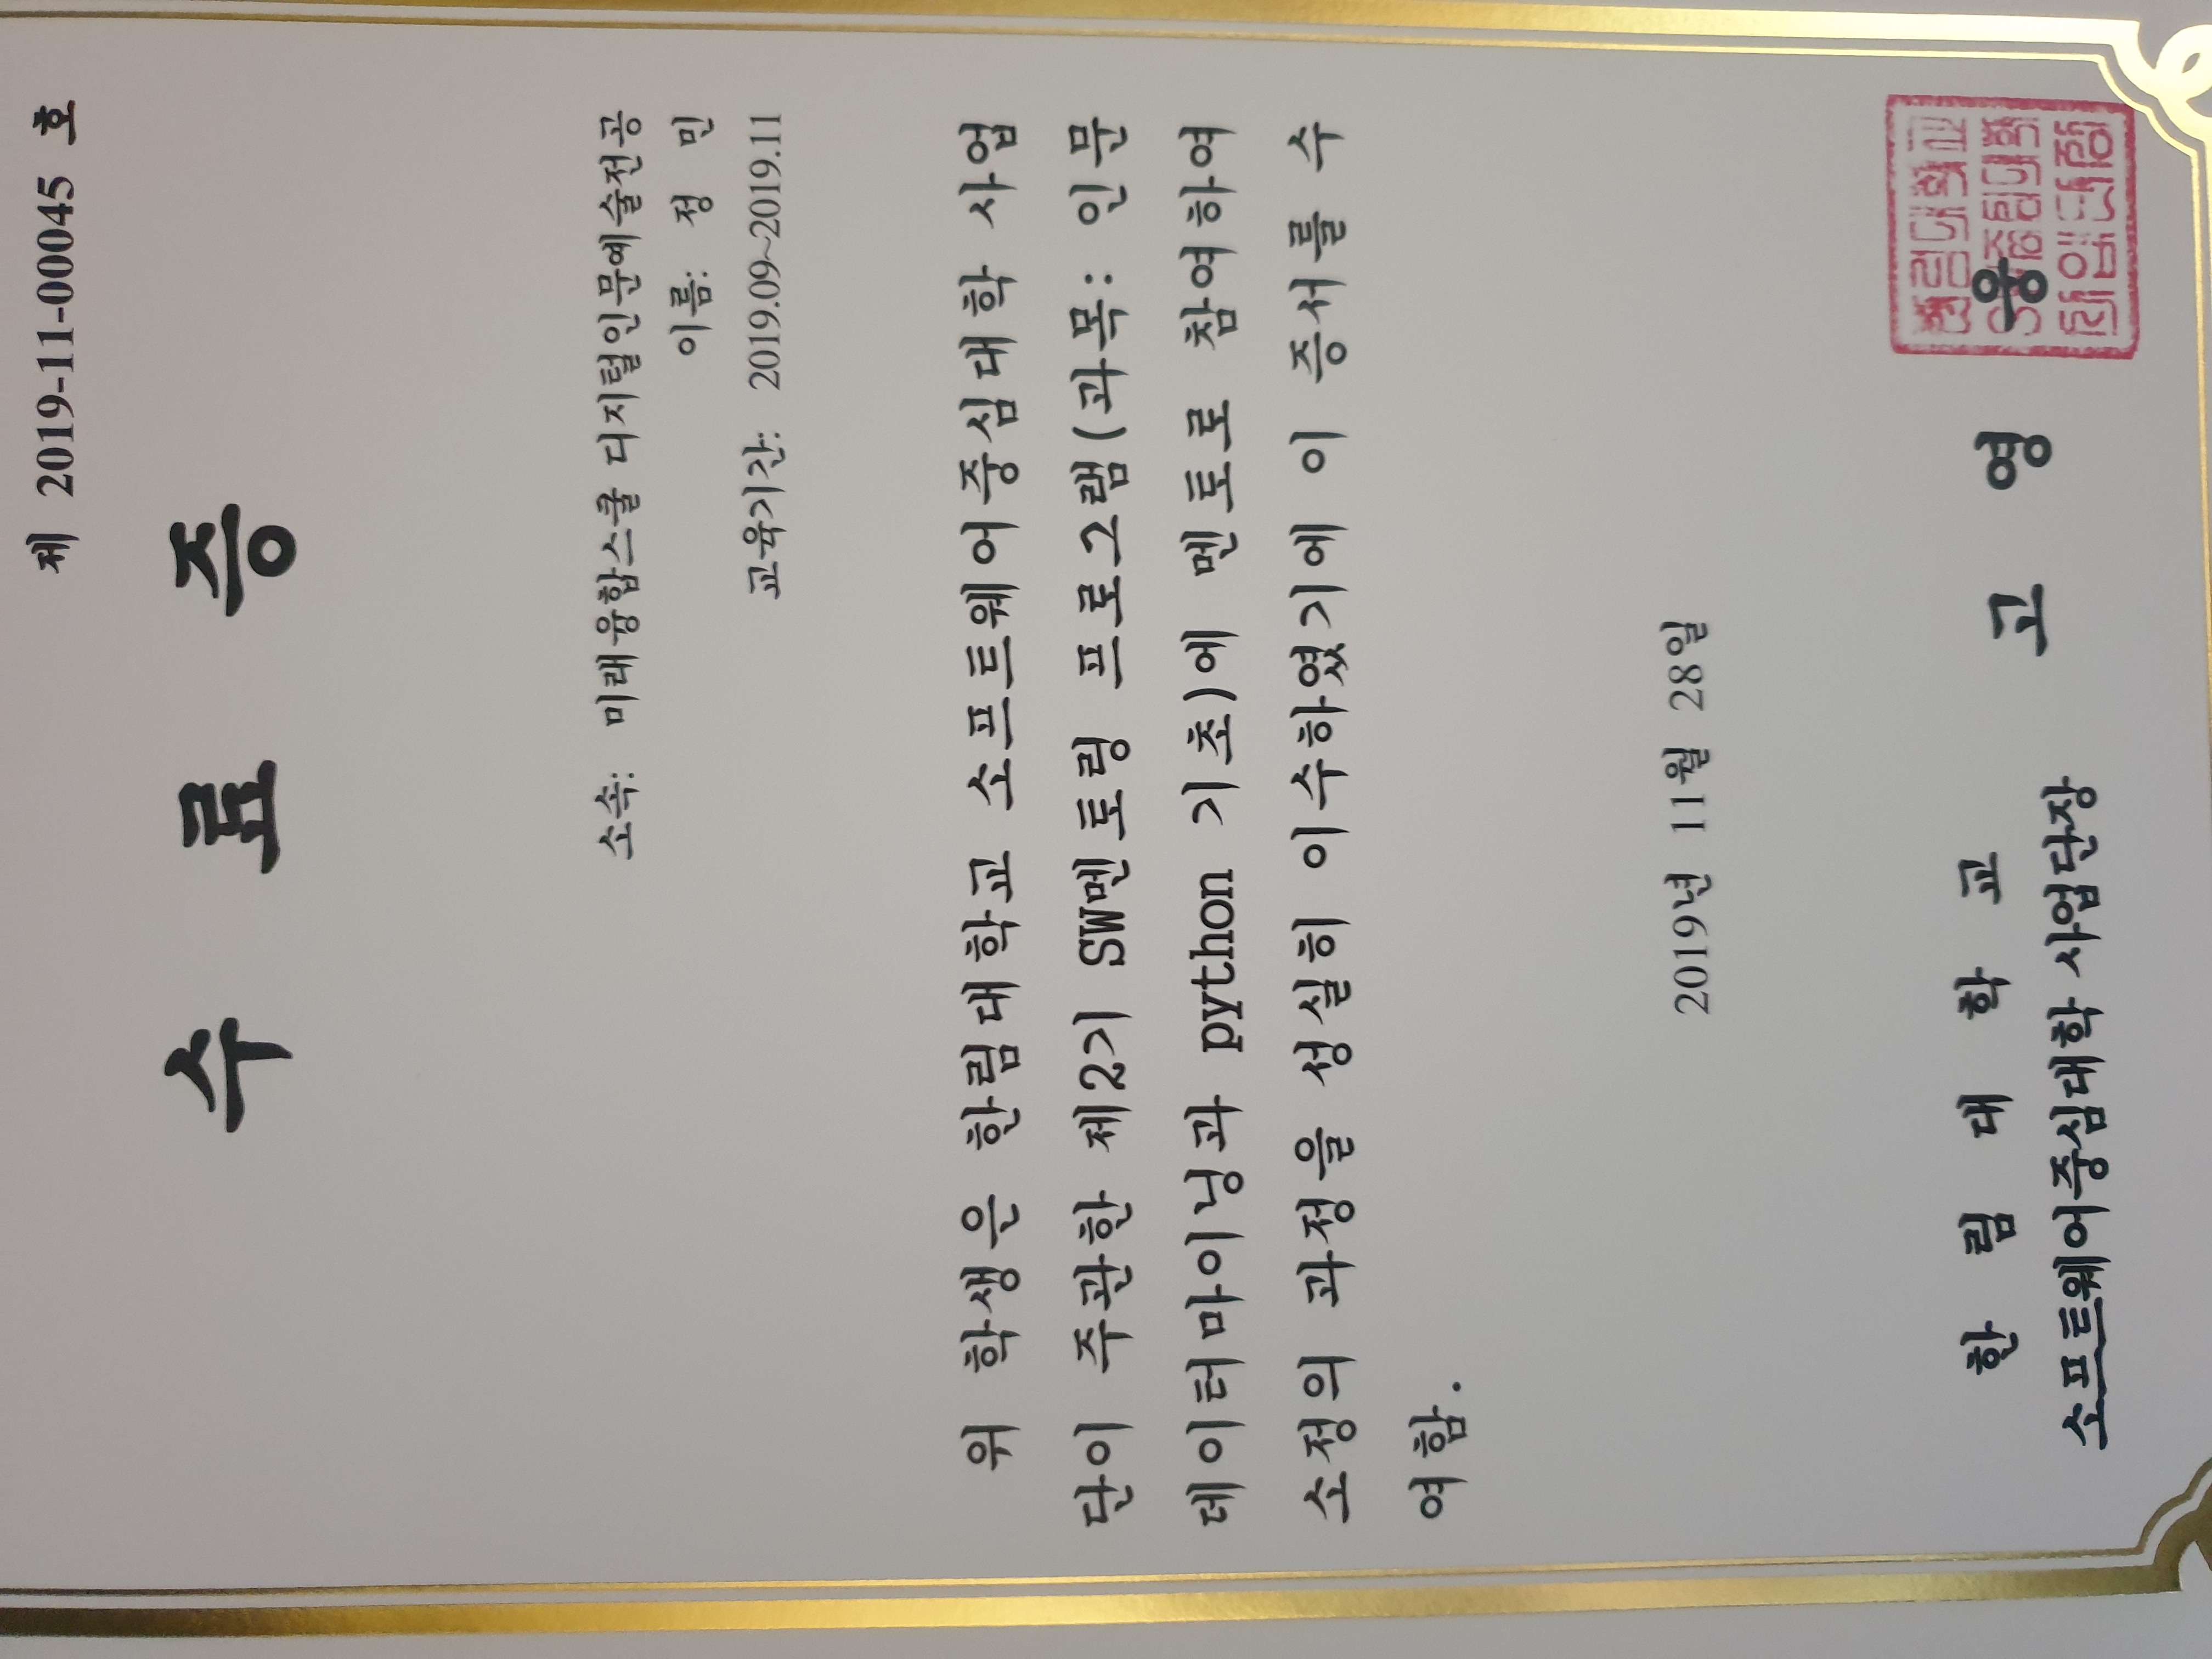 제 2019-11-00045 호
수 료 증
소속: 미래융합스쿨 디지털인문예술전공
이름: 정 민
교육기간: 2019.09~2019.11
위 학생은 한림대학교 소프트웨어중심대학 사업
단이 주관한 제2기 SW멘토링 프로그램(과목: 인문
데이터마이닝과 python 기초)에 멘토로 참여하여
소정의 과정을 성실히 이수하였기에 이 증서를 수
여함.
2019년 11월 28일
한 림 대 학 교
소프트웨어중심대학 사업단장
고 영 웅
한림대학교
중심대학
사업단장